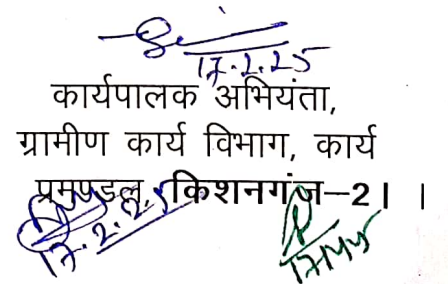 17.2.25
कार्यपालक अभियंता,
ग्रामीण कार्य विभाग, कार्य
प्रमुण्डल, किशनगंज–2। ।
17.2.25